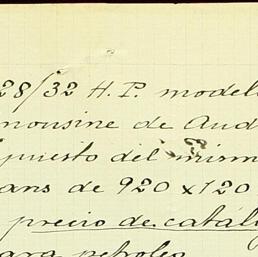 28/32 H.P. model
mousine de Aud
puesto del mism
ans de 920 x 120
precio de catál
ara petroleo